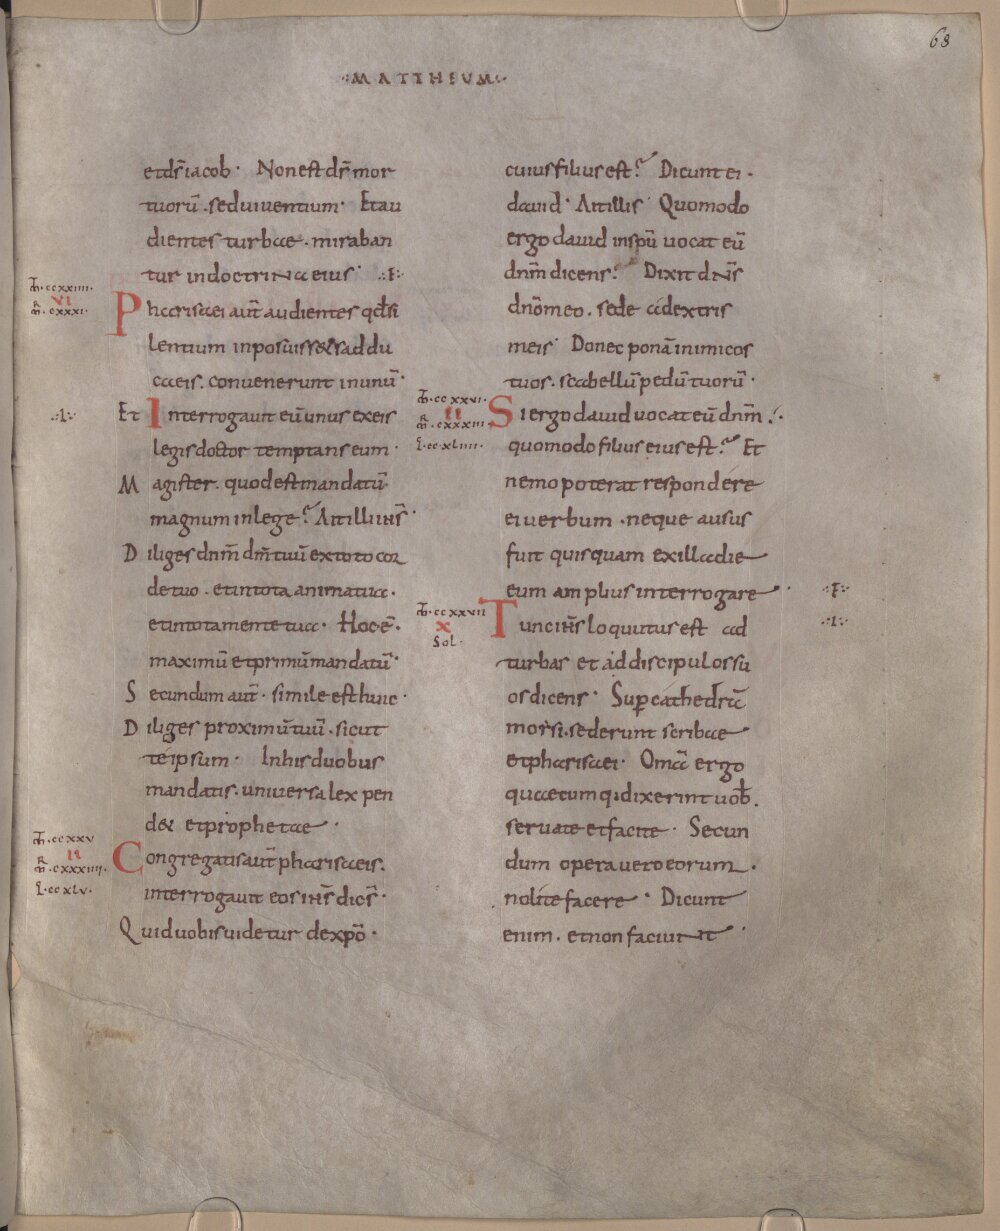 68
·:MATTHEUM:·
et ds̄ iacob · Non est ds̄ mor
tuorū . sed uiuentium · Et au
dientes turbae . miraban
tur in doctrina eius · ·:F:·
m̄ . ccxxiiii .
VI
m̄r . cxxxi .
Pharisaei aut̄ audientes qd̄ si
lentium inposuisset saddu
caeis . conuenerunt in unū ·
·:L:·
Et Interrogauit eū unus ex eis
legis doctor temptans eum ·
Magister . quod est mandatū
magnum in lege? Ait illi ihs̄ ·
Diliges dnm̄ dm̄ tuū ex toto cor
de tuo . et in tota anima tua .
et in tota mente tua · Hoc ē ·
maximū et primū mandatū ·
Secundum aut̄ · simile est huic ·
Diliges proximū tuū . sicut
te ipsum · In his duobus
mandatis . uniuersa lex pen
det et prophetae ·
m̄ . ccxxv
II
m̄r . cxxxiiii .
l . ccxlv .
Congregatis aut̄ pharisaeis .
interrogauit eos ihs̄ dics̄ ·
Quid uobis uidetur de xpō ·
cuius filius est? Dicunt ei .
dauid · Ait illis · Quomodo
ergo dauid in spū uocat eū
dnm̄ dicens? Dixit dns̄
dnō meo . sede a dextris
meis · Donec ponā inimicos
tuos . scabellū pedū tuorū ·
m̄ . ccxxvi .
II
m̄r . cxxxiii .
l . ccxliiii .
Si ergo dauid uocat eū dnm̄ .
quomodo filius eius est? Et
nemo poterat respondere
ei uerbum . neque ausus
fuit quisquam ex illa die
eum amplius interrogare · ·:F:·
m̄ . ccxxvii
X
Sol ·
·:L:·
Tunc ihs̄ loquutus est ad
turbas et ad discipulos su
os dicens · Sup cathedrā
moysi . sederunt scribae
et pharisaei · Omā ergo
quaecumq; dixerint uob̄ .
seruate et facite · Secun
dum opera uero eorum .
nolite facere · Dicunt
enim . et non faciunt ·